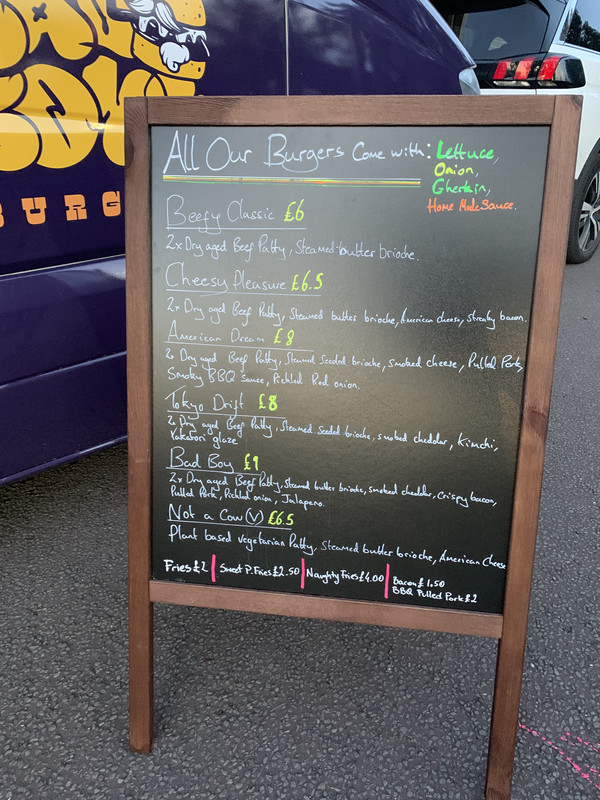 BURG
All Our Burgers Come with: Lettuce,
Onion,
Gherkin,
Home Made Sauce.
Beefy Classic £6
2x Dry aged Beef Patty, Steamed butter brioche.
Cheesy Pleasure £6.5
2x Dry aged Beef Patty, Steamed butter brioche, American cheese, streaky bacon.
American Dream £8
2x Dry aged Beef Patty, Steamed Seeded brioche, smoked cheese, Pulled Pork,
Smoky BBQ sauce, Pickled Red onion.
Tokyo Drift £8
2x Dry aged Beef Patty, Steamed Seeded brioche, smoked cheddar, Kimchi,
Yakatori glaze
Bad Boy £9
2x Dry aged Beef Patty, Steamed butter brioche, smoked cheddar, Crispy bacon,
Pulled Pork, Pickled onion, Jalapeno.
Not a Cow (V) £6.5
Plant based vegetarian Patty, Steamed butter brioche, American Cheese
Fries £2 | Sweet P. Fries £2.50 | Naughty Fries £4.00 | Bacon £1.50
BBQ Pulled Pork £2